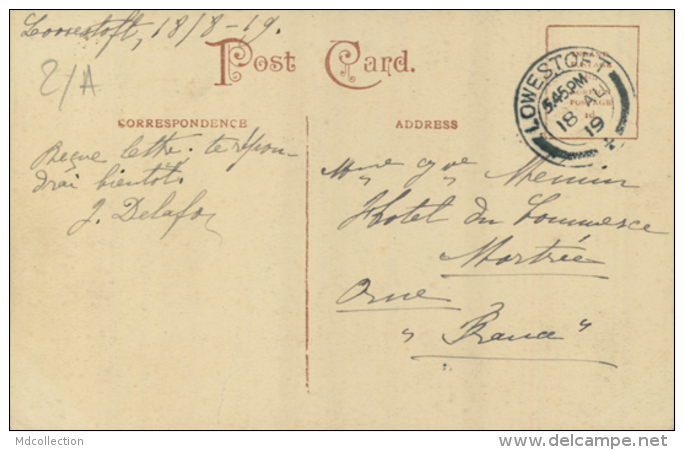 Lowestoft, 18/8-19.
2/A
Post Card.
CORRESPONDENCE
ADDRESS
LOWESTOFT
5.45 PM
18 AU
19
INLAND
POSTAGE
Reçue lettre. te répon-
drai bientôt.
J. Delafoy
Mme Menuin
Hotel du Commerce
Mortrée
Orne
"France"
Mdcollection
delcampe.net